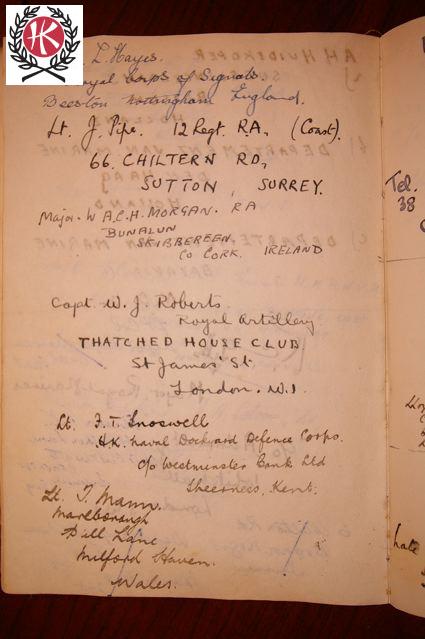 HK
L. Hayes.
Royal Corps of Signals.
Beeston Nottingham England.
Lt. J. Pipe. 12 Regt. R.A, (Coast).
66. CHILTERN RD,
SUTTON, SURREY.
Major. W.A.C.H. MORGAN. RA
BUNALUN
SKIBBEREEN
Co CORK. IRELAND
Capt. W. J. Roberts
Royal Artillery
THATCHED HOUSE CLUB
St James' St.
London. W.1
Lt. F. T. Snoswell
H.K. Naval Dockyard Defence Corps.
c/o Westminster Bank Ltd
Sheerness, Kent.
Lt. T. Mann.
Marlborough
Pill Lane
Milford Haven.
Wales.
Tel.
38